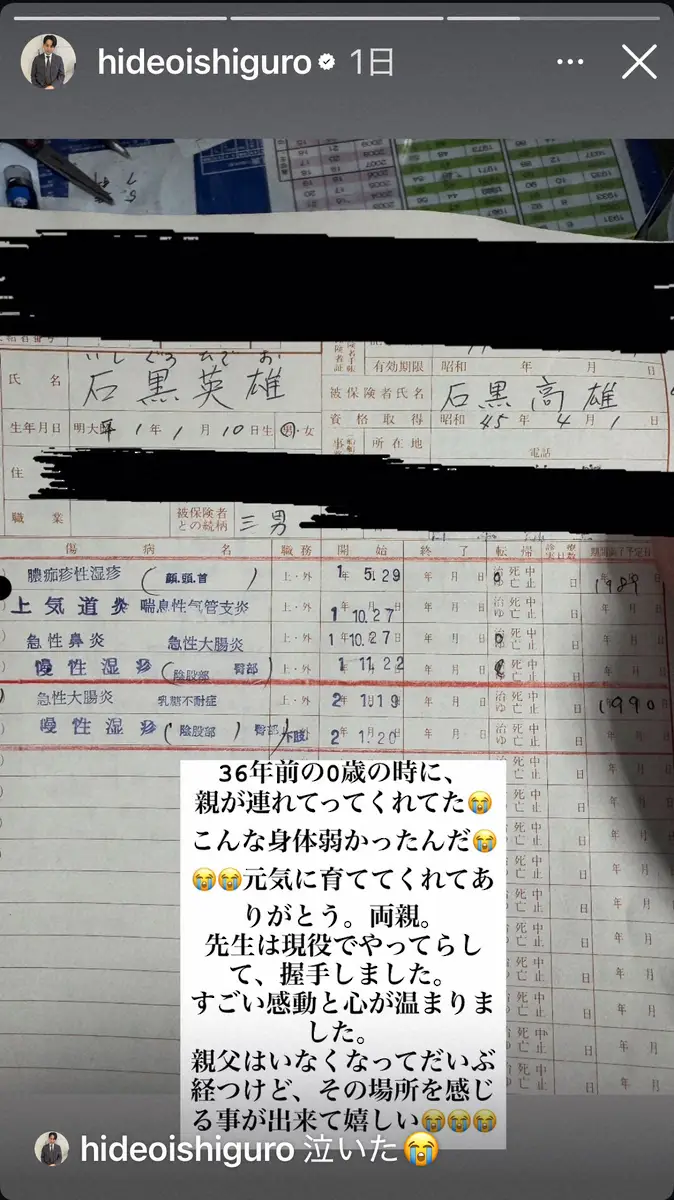 hideoishiguro 1日
いしぐろ ひでお
氏 名 石黒英雄
有効期限 昭和 年 月 日
被保険者氏名 石黒高雄
生年月日 明大平 1年 1月 10日生 男・女
資格取得 昭和 45年 4月 1日
所在地
電話
住
職業
被保険者との続柄 三男
傷 病 名 職務 開 始 終 了 転帰 期間満了予定日
膿痂疹性湿疹 (顔.頭.首) 上・外 1年 5.29 年 月 日 治ゆ 死亡 中止 日 1989
上気道炎 喘息性気管支炎 1 10.27 年 月 日 治ゆ 死亡 中止 日 年 月 日
急性鼻炎 急性大腸炎 上・外 1年10.27日 年 月 日 治ゆ 死亡 中止 日 年 月 日
慢性湿疹 (陰股部 臀部) 上・外 1 11.22 年 月 日 治ゆ 死亡 中止 日 年 月 日
急性大腸炎 乳糖不耐症 上・外 2年 1.19 年 月 日 治ゆ 死亡 中止 日 1990
慢性湿疹 (陰股部) 臀部 下肢 2年 1.20 年 月 日 治ゆ 死亡 中止 日 年 月 日
36年前の0歳の時に、
親が連れてってくれてた😭
こんな身体弱かったんだ😭
😭😭元気に育ててくれてあ
りがとう。両親。
先生は現役でやってらし
て、握手しました。
すごい感動と心が温まりま
した。
親父はいなくなってだいぶ
経つけど、その場所を感じ
る事が出来て嬉しい😭😭😭
hideoishiguro 泣いた😭